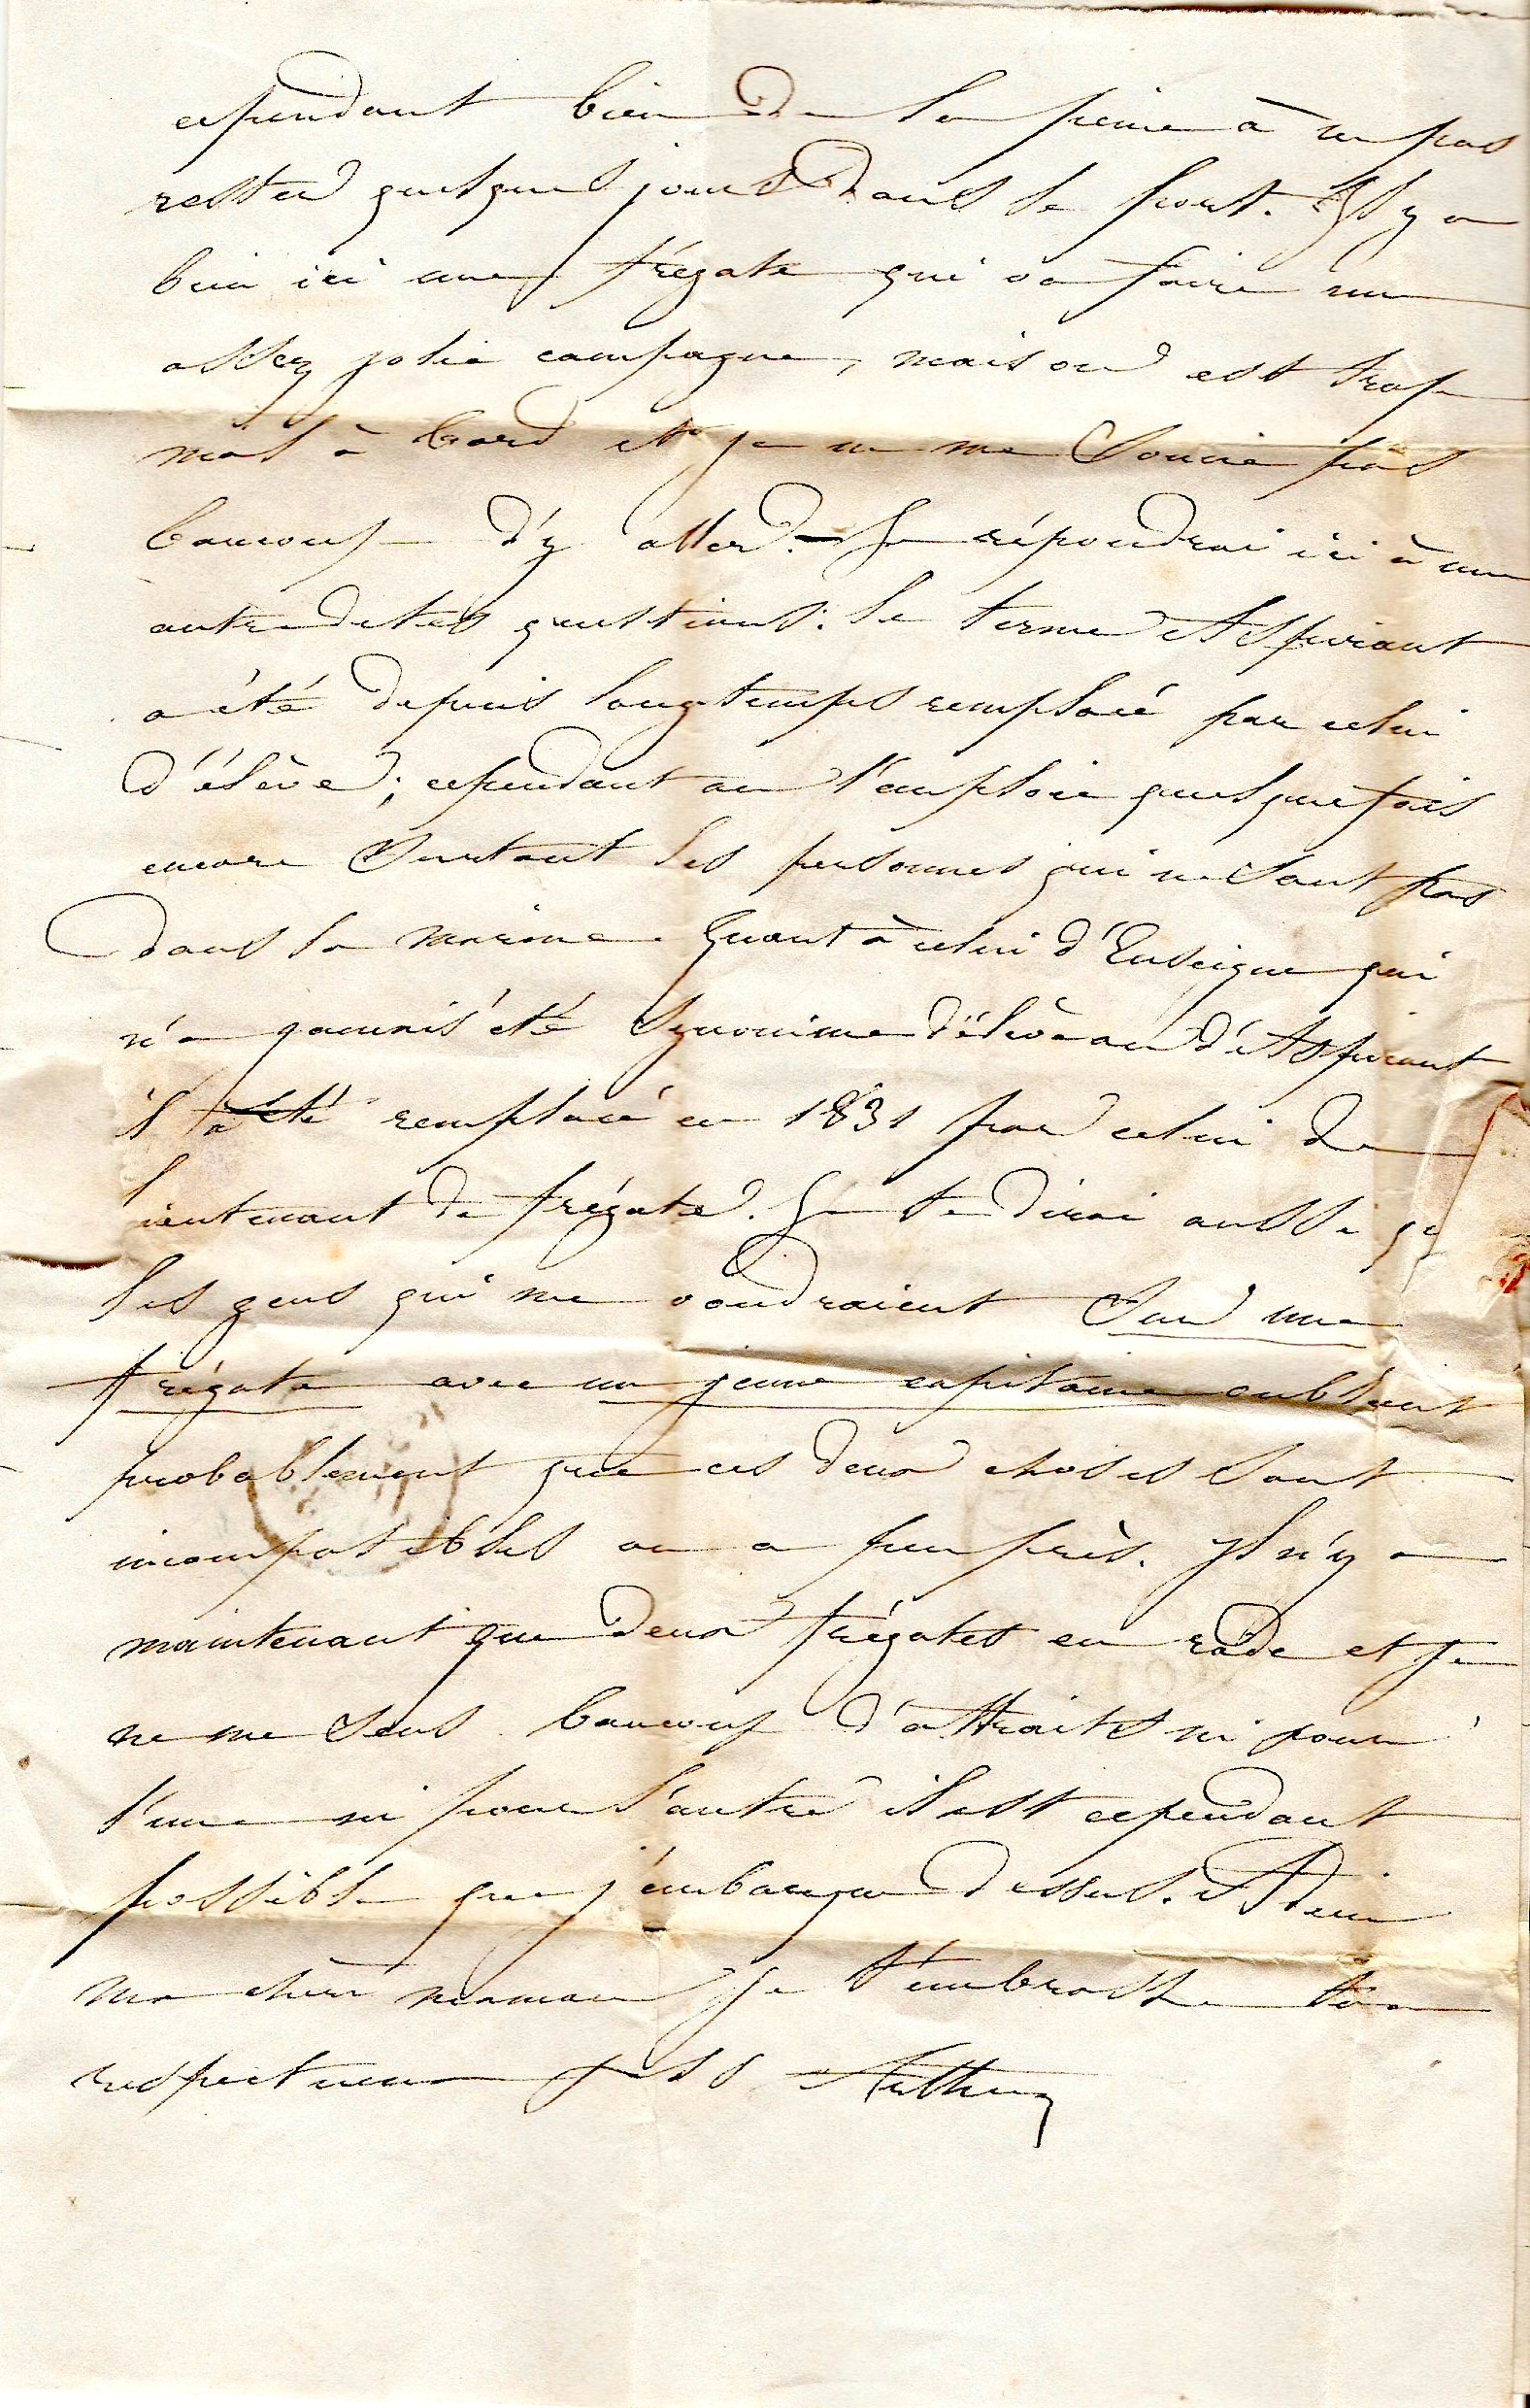 cependant bien de la peine à ne pas
rester quelques jours dans le port. Il y a
bien ici une frégate qui va faire une
assez jolie campagne, mais on est trop
mal à bord et je ne me soucie pas
beaucoup d'y aller. — Je répondrai ici à une
autre de tes questions: le terme Aspirant
a été depuis longtemps remplacé par celui
d'élève; cependant on l'emploie quelquefois
encore surtout les personnes qui ne sont pas
dans la marine. Quant à celui d'Enseigne qui
n'a jamais été synonime d'élève ou d'Aspirant
il a été remplacé en 1831 par celui de
lieutenant de frégate. Je te dirai aussi q
les gens qui me voudraient sur une
frégate avec un jeune capitaine oublient
probablement que ces deux choses sont
incompatibles ou a peu près. Il n'y a
maintenant que deux frégates en rade et je
ne me sens beaucoup d'attraits ni pour
l'une ni pour l'autre il est cependant
possible que j'embarque dessus. Adieu
ma chère maman je t'embrasse ton
respectueux fils Arthur